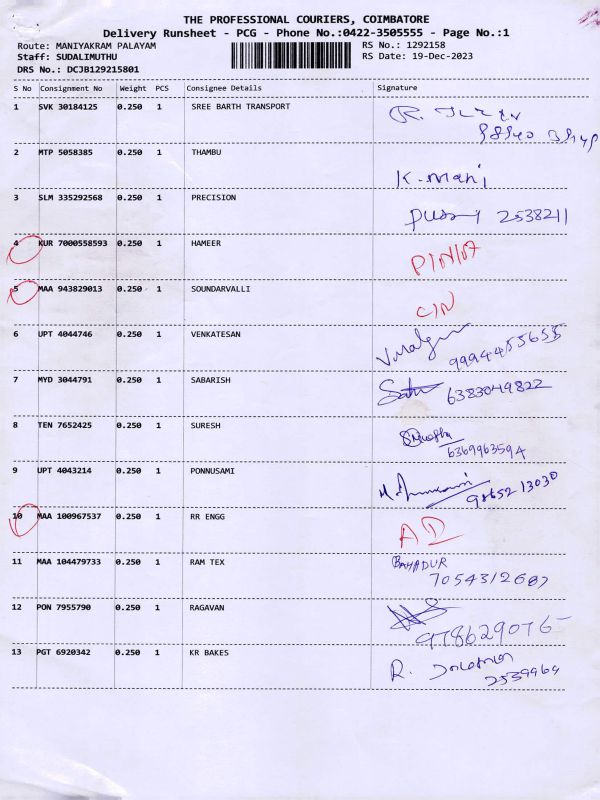 THE PROFESSIONAL COURIERS, COIMBATORE
Delivery Runsheet - PCG - Phone No.:0422-3505555 - Page No.:1
Route: MANIYAKRAM PALAYAM RS No.: 1292158
Staff: SUDALIMUTHU RS Date: 19-Dec-2023
DRS No.: DCJB129215801
S No Consignment No Weight PCS Consignee Details Signature
1 SVK 30184125 0.250 1 SREE BARTH TRANSPORT R.
2 MTP 5058385 0.250 1 THAMBU K. mani
3 SLM 335292568 0.250 1 PRECISION 2538211
4 KUR 7000558593 0.250 1 HAMEER
5 MAA 943829013 0.250 1 SOUNDARVALLI
6 UPT 4044746 0.250 1 VENKATESAN 9994455655
7 MYD 3044791 0.250 1 SABARISH 6383049822
8 TEN 7652425 0.250 1 SURESH 6369963594
9 UPT 4043214 0.250 1 PONNUSAMI 98652 13030
10 MAA 100967537 0.250 1 RR ENGG AD
11 MAA 104479733 0.250 1 RAM TEX BAHADUR
7054312687
12 PON 7955790 0.250 1 RAGAVAN
13 PGT 6920342 0.250 1 KR BAKES R.
2539964